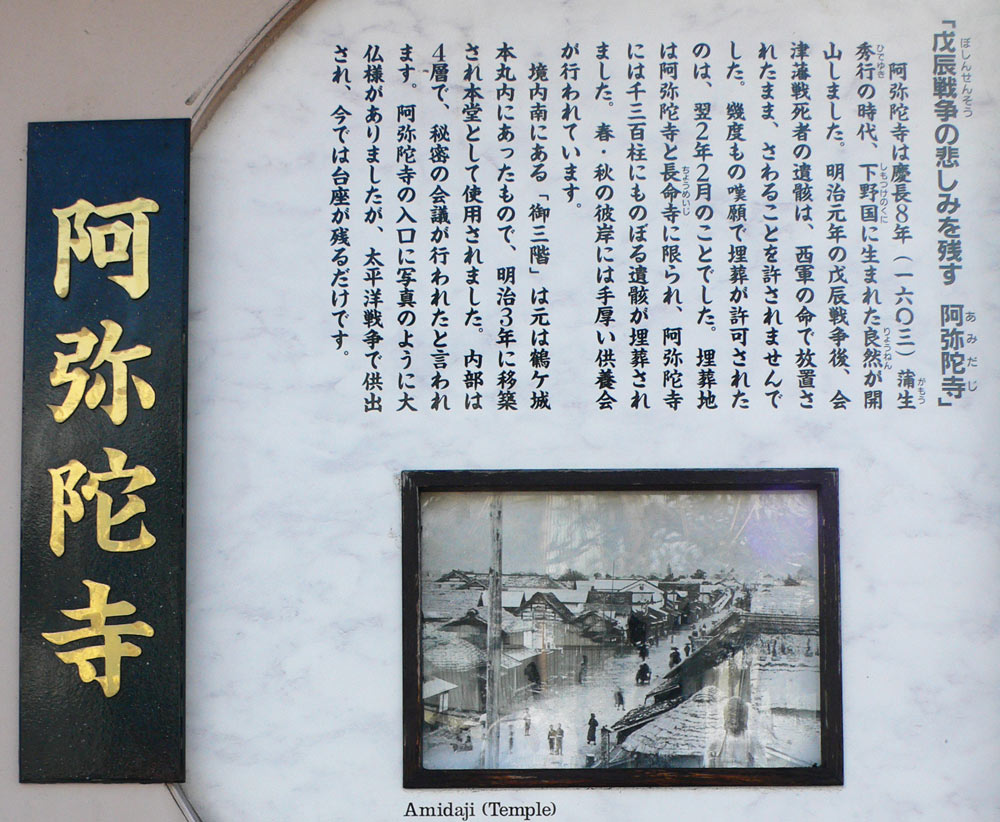 「戊辰戦争の悲しみを残す　阿弥陀寺」
ぼしんせんそう
あみだじ
阿弥陀寺は慶長8年（一六〇三）蒲生
がもう
秀行の時代、下野国に生まれた良然が開
ひでゆき
しもつけのくに
りょうねん
山しました。明治元年の戊辰戦争後、会
津藩戦死者の遺骸は、西軍の命で放置さ
れたまま、さわることを許されませんで
した。幾度もの嘆願で埋葬が許可された
のは、翌2年2月のことでした。埋葬地
は阿弥陀寺と長命寺に限られ、阿弥陀寺
ちょうめいじ
には千三百柱にものぼる遺骸が埋葬され
ました。春・秋の彼岸には手厚い供養会
が行われています。
境内南にある「御三階」は元は鶴ケ城
本丸内にあったもので、明治3年に移築
され本堂として使用されました。内部は
4層で、秘密の会議が行われたと言われ
ます。阿弥陀寺の入口に写真のように大
仏様がありましたが、太平洋戦争で供出
され、今では台座が残るだけです。
阿弥陀寺
Amidaji (Temple)